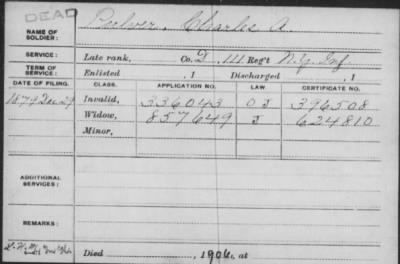 DEAD
NAME OF SOLDIER: Pulver, Charles A.
SERVICE: Late rank, Co. D, 111 Reg't N.Y. Inf.
TERM OF SERVICE: Enlisted , 1 Discharged , 1
DATE OF FILING. CLASS. APPLICATION NO. LAW. CERTIFICATE NO.
1879 Dec 29 Invalid, 336043 396508
Widow, 857649 624810
Minor,
ADDITIONAL SERVICES:
REMARKS:
Died , 1906, at